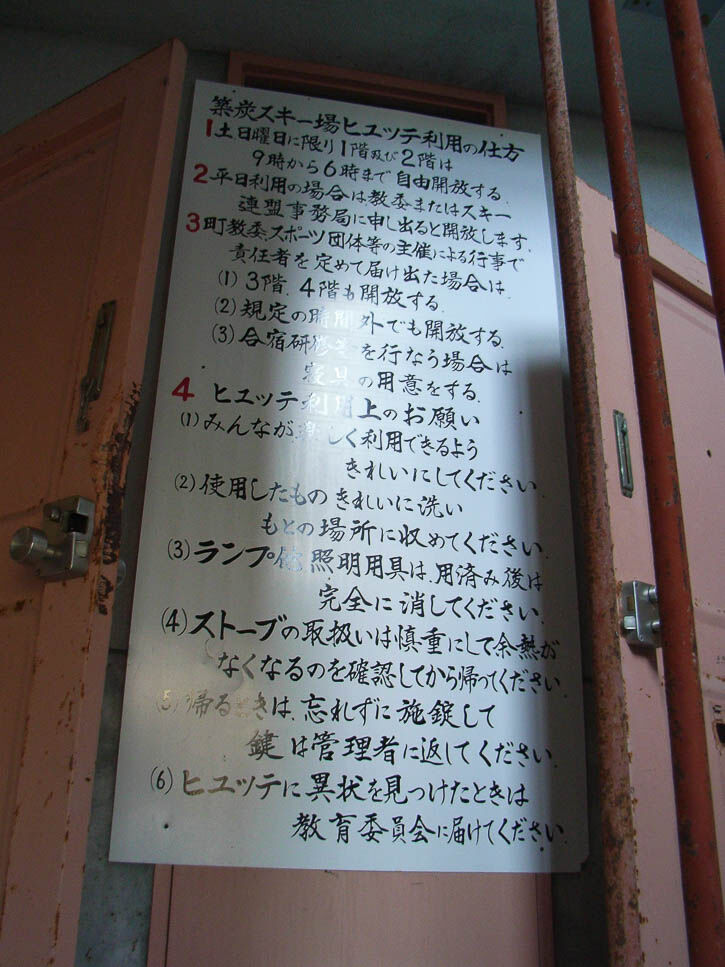 築炭スキー場ヒュッテ利用の仕方
1 土日曜日に限り1階及び2階は
9時から6時まで自由開放する.
2 平日利用の場合は、教委またはスキー
連盟事務局に申し出ると開放します.
3 町教委、スポーツ団体等の主催による行事で
責任者を定めて届け出た場合は.
(1) 3階.4階も開放する.
(2) 規定の時間外でも開放する.
(3) 合宿研修等を行なう場合は
寝具の用意をする.
4 ヒュッテ利用上のお願い
(1) みんなが楽しく利用できるよう
きれいにしてください.
(2) 使用したものきれいに洗い
もとの場所に収めてください.
(3) ランプ他照明用具は、用済み後は
完全に消してください.
(4) ストーブの取扱いは慎重にして余熱が
なくなるのを確認してから帰ってください.
(5) 帰るときは、忘れずに施錠して
鍵は管理者に返してください.
(6) ヒュッテに異状を見つけたときは
教育委員会に届けてください.